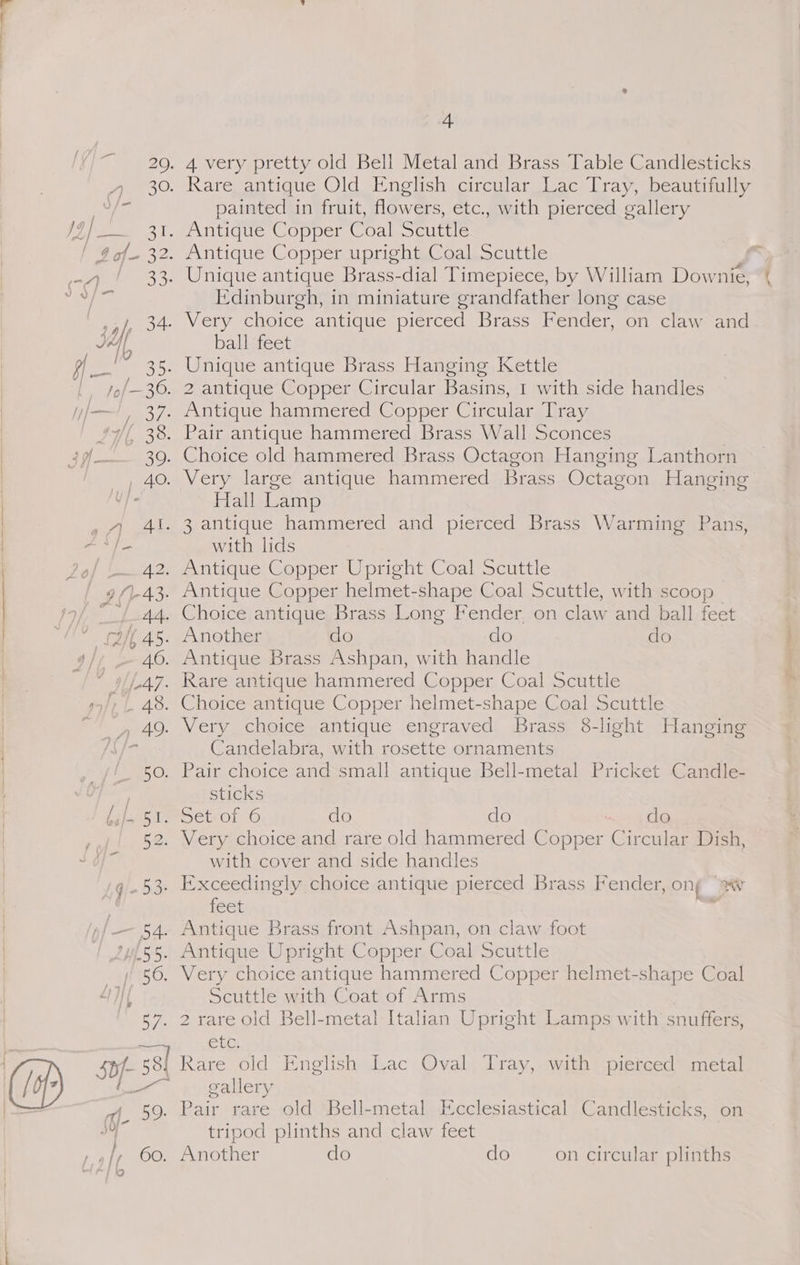 4
29. 4 very pretty old Bell Metal and Brass Table Candlesticks
30. Rare antique Old English circular Lac Tray, beautifully
painted in fruit, flowers, etc., with pierced gallery
31. Antique Copper Coal Scuttle
32. Antique Copper upright Coal Scuttle
33. Unique antique Brass-dial Timepiece, by William Downie,
Edinburgh, in miniature grandfather long case
34. Very choice antique pierced Brass Fender, on claw and
ball feet
35. Unique antique Brass Hanging Kettle
36. 2 antique Copper Circular Basins, 1 with side handles
37. Antique hammered Copper Circular Tray
38. Pair antique hammered Brass Wall Sconces
39. Choice old hammered Brass Octagon Hanging Lanthorn
40. Very large antique hammered Brass Octagon Hanging
Hall Lamp
41. 3 antique hammered and pierced Brass Warming Pans,
with lids
42. Antique Copper Upright Coal Scuttle
43. Antique Copper helmet-shape Coal Scuttle, with scoop
44. Choice antique Brass Long Fender, on claw and ball feet
45. Another do do do
46. Antique Brass Ashpan, with handle
47. Rare antique hammered Copper Coal Scuttle
48. Choice antique Copper helmet-shape Coal Scuttle
49. Very choice antique engraved Brass 8-light Hanging
Candelabra, with rosette ornaments
50. Pair choice and small antique Bell-metal Pricket Candle-
sticks
51. Set of 6 do do do
52. Very choice and rare old hammered Copper Circular Dish,
with cover and side handles
53. Exceedingly choice antique pierced Brass Fender, on
feet
54. Antique Brass front Ashpan, on claw foot
55. Antique Upright Copper Coal Scuttle
56. Very choice antique hammered Copper helmet-shape Coal
Scuttle with Coat of Arms
57. 2 rare old Bell-metal Italian Upright Lamps with snuffers,
etc.
58 Rare old English Lac Oval Tray, with pierced metal
gallery
59. Pair rare old Bell-metal Ecclesiastical Candlesticks, on
tripod plinths and claw feet
60. Another do do on circular plinths